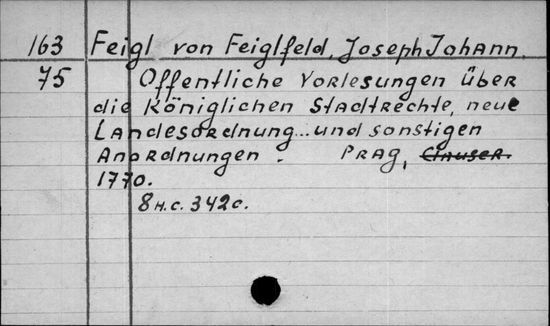 163 Feigl von Feiglfeld, Joseph Johann.
75 Offentliche Vorlesungen über
die Königlichen Stadtrechte, neue
Landesordnung...und sonstigen
Anordnungen. Prag, Clauser.
1770.
8 H.c. 342c.